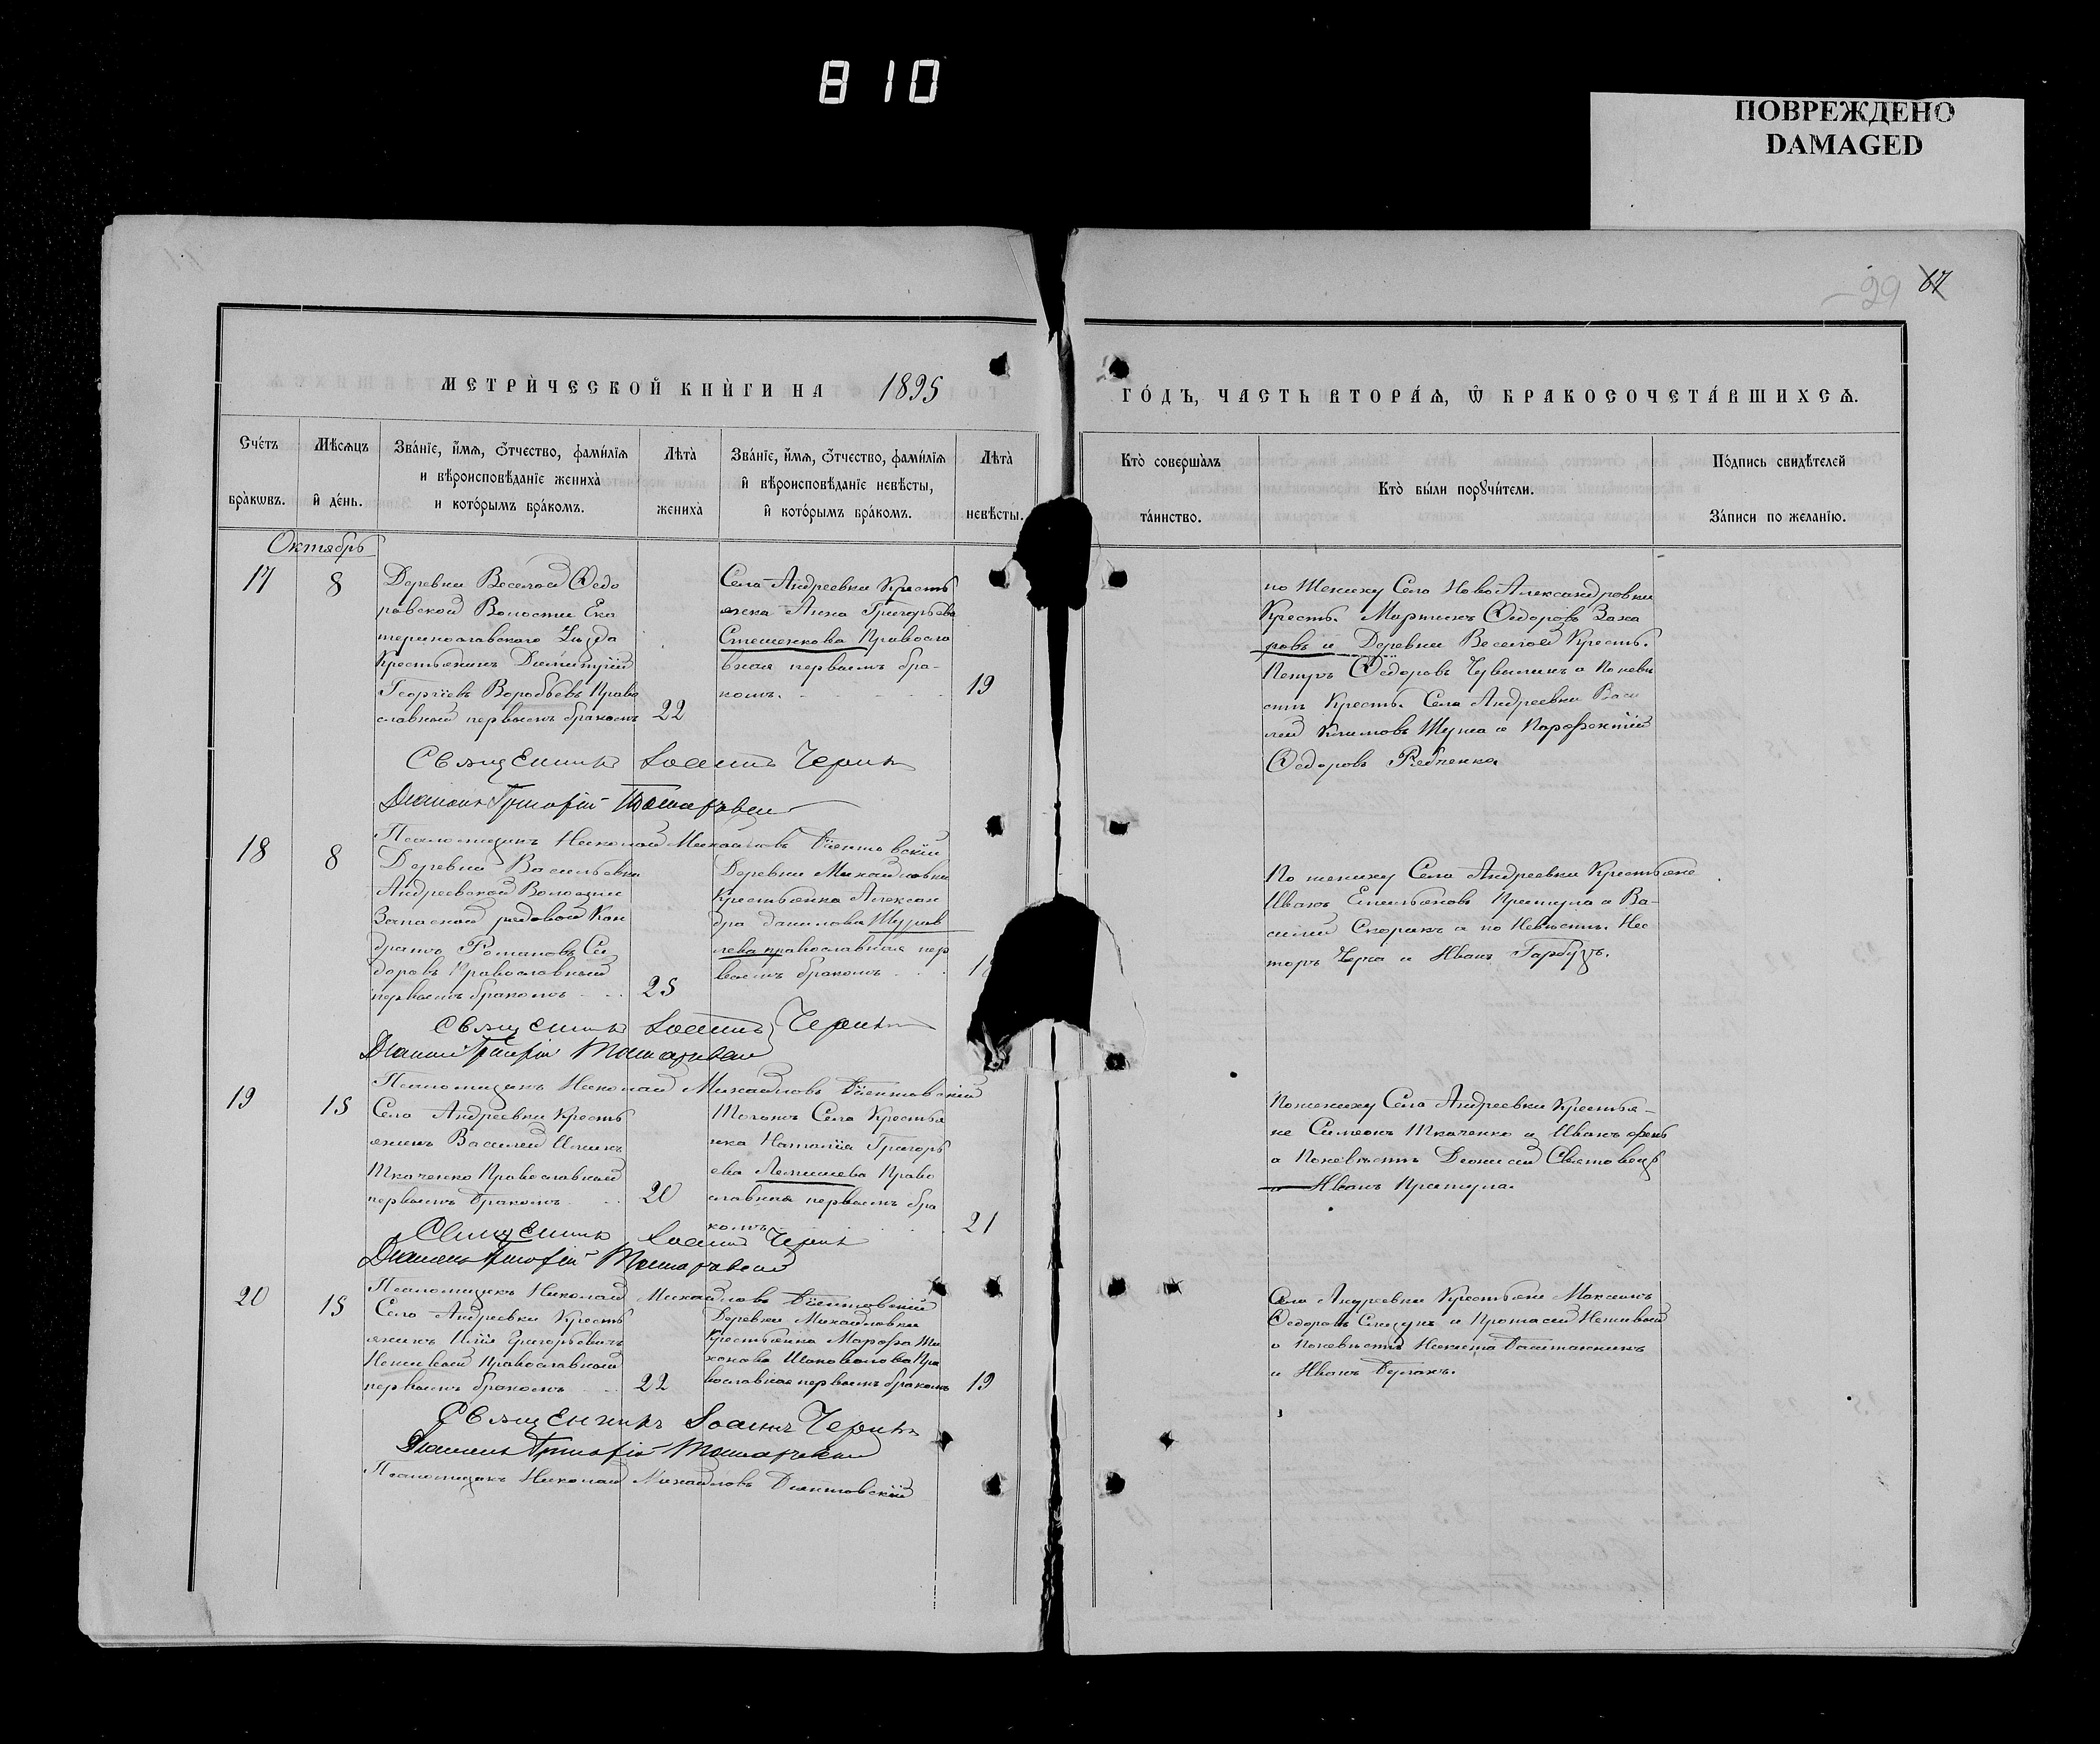 810
ПОВРЕЖДЕНО
DAMAGED
29 67
МЕТРИ́ЧЕСКОЙ КНИ́ГИ НА 1895
ГО́ДЪ, ЧАСТЬ ВТОРА́Ѧ, Ѽ БРАКОСОЧЕТА́ВШИХСѦ.
Сче́тъ бра́кѡвъ.
Мѣ́сѧцъ и҆ де́нь.
Зва́нїе, и҆́мѧ, ѻ҆́тчество, фами́лїѧ
и вѣроисповѣ́данїе жениха̀
и кото́рымъ бра́комъ.
Лѣта̀ жениха̀
Зва́нїе, и҆́мѧ, ѻ҆́тчество, фами́лїѧ
и҆ вѣроисповѣ́данїе невѣ́сты,
и҆ кото́рымъ бра́комъ.
Лѣта̀ невѣ́сты.
Кто̀ соверша́лъ та́инство.
Кто̀ бы́ли порꙋчи́тели.
По́дпись свидѣ́телей
За́писи по жела́нїю.
Октябрь
17
8
Деревни Веселой Ѳедо
ровской Волости Ека
теринославского Уезда
Крестьянинъ Димитрій
Георгіевъ Воробьевъ Право
славный первымъ бракомъ
22
Села Андреевки Кресть
янка Анна Григорьева
Стешенкова Правосла
вная первымъ бра-
комъ.
19
по Жениху Села НовоАлександровки
Крестьꙗ. Мартинъ Ѳедоровъ Заха
ровъ и Деревни Веселой Кресть.
Петръ Ѳедоровъ а по Невѣ
стѣ Кресть. Села Андреевки Васи
лій Климовъ Щука и
Ѳедоровъ Рябченка
Священникъ Іоаннъ Чернин
Діаконъ Григорій
Псаломщикъ Николай Михайловъ
18
8
Деревни Васильевки
Андреевской Волости
Запасной рядовой Кон
дратъ Романовъ Си
доровъ Православный
первымъ бракомъ
25
Деревни Михайловки
Крестьянка Алексан
дра Данилова Журав
лева православная пер
вымъ бракомъ
По жениху Села Андреевки Крестьяне
Иванъ Емельяновъ Притула и Ва-
силій Скорикъ а по Невѣстѣ Нес
торъ Черка и Иванъ Гарбузъ.
Священникъ Іоаннъ Чернин
Діаконъ Григорій
Псаломщикъ Николай Михайловъ
19
15
Села Андреевки Кресть
янинъ Василій Ильинъ
Ткаченко Православный
первымъ бракомъ
20
Того жъ Села Крестья
нка Наталія Григорь
ева Право
славная первымъ бра
комъ
21
По жениху Села Андреевки Крестья-
не Симеонъ Ткаченко и Иванъ
а по невѣстѣ Діонисій
и Иванъ Притула.
Священникъ Іоаннъ Чернин
Діаконъ Григорій
Псаломщикъ Николай Михайловъ
20
15
Села Андреевки Кресть
янинъ Илія Григорьевичъ
Неживый Православный
первымъ бракомъ
22
Деревни Михайловки
Крестьянка Марфа Ти
хонова Шаповалова Пра
вославная первымъ бракомъ
19
Села Андреевки Крестьяне Максимъ
Ѳедоровъ и Протасій Неживый
а по невѣстѣ Никита
и Иванъ
Священникъ Іоаннъ Чернин
Діаконъ Григорій
Псаломщикъ Николай Михайловъ